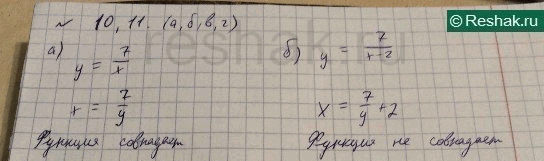 Reshak.ru
№ 10,11. (а,б,в,г)
а) y = 7/x
б) y = 7/(x-2)
x = 7/y
x = 7/y + 2
Функция совпадает
Функция не совпадает